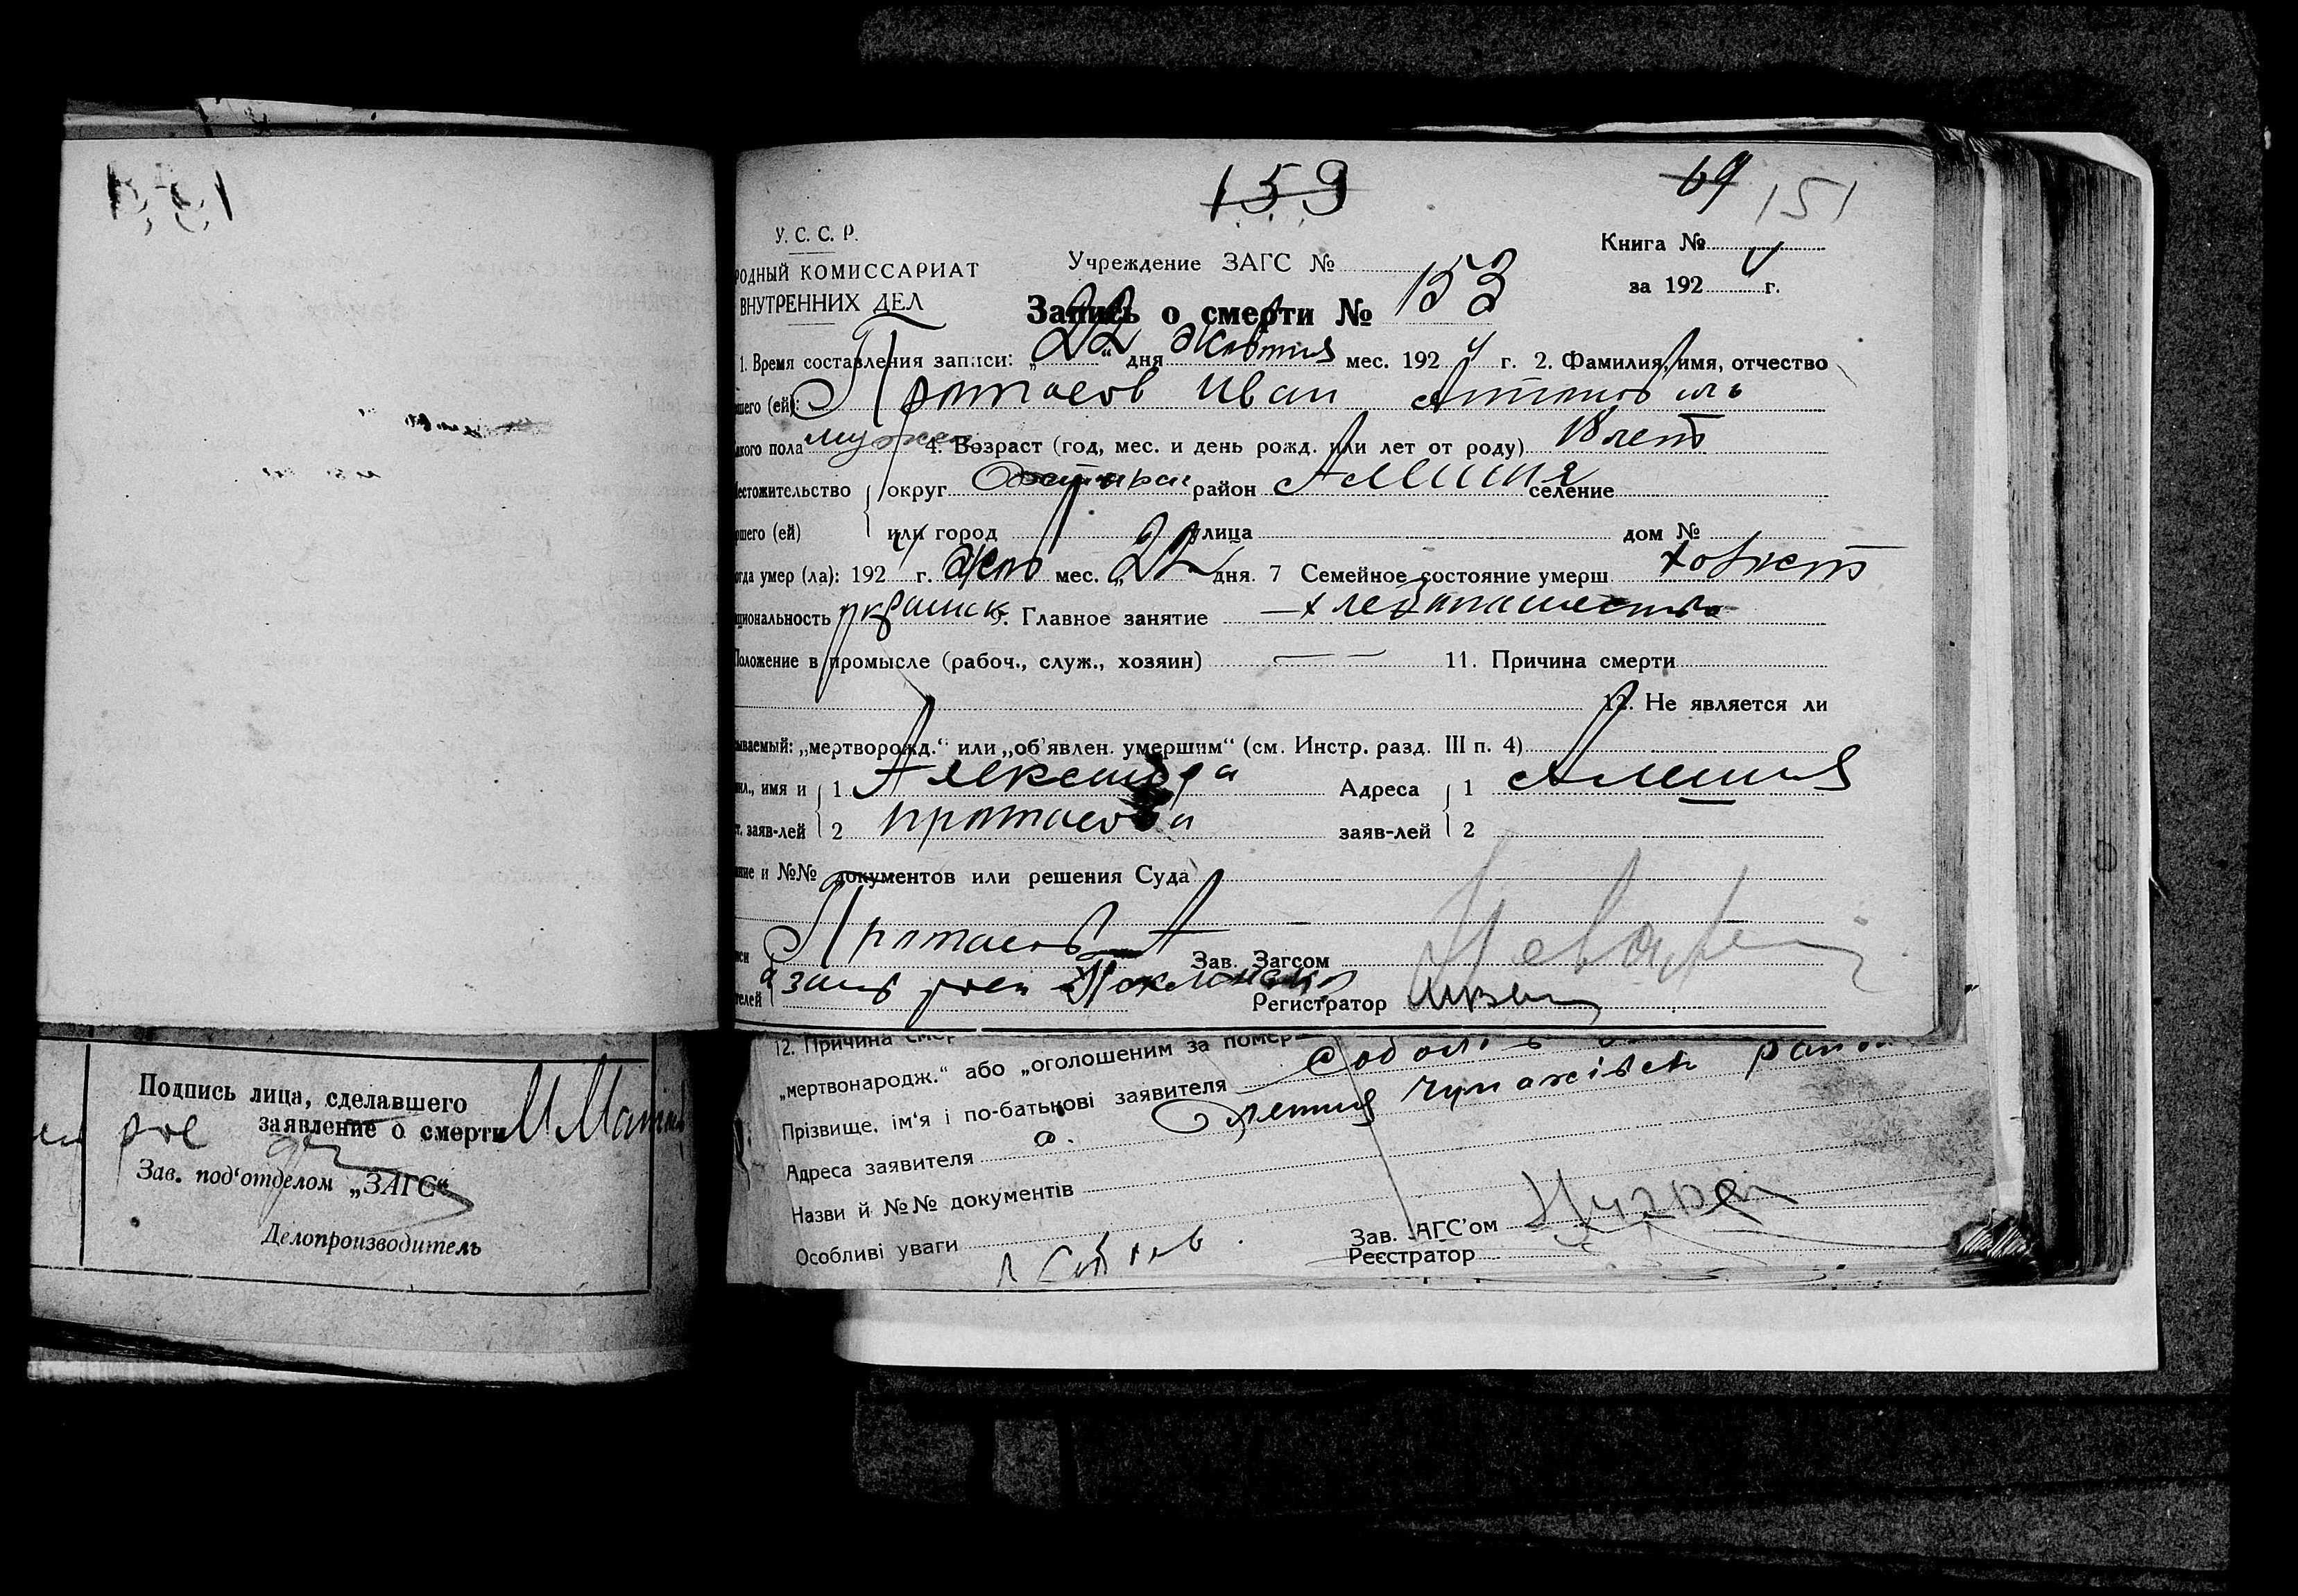 159
69 151
У. С. С. Р.
РОДНЫЙ КОМИССАРИАТ
ВНУТРЕННИХ ДЕЛ
Учреждение ЗАГС №
Книга №
за 192 4 г.
Запись о смерти № 153
1. Время составления записи: „22“ дня Жовтня мес. 192 4 г. 2. Фамилия, имя, отчество
шего (ей): Протасов Иван Антонович
кого пола мужск 4. Возраст (год, мес. и день рожд. или лет от роду) 18 лет
естожительство округ район Алешня селение
ршего (ей) или город улица дом №
огда умер (ла): 192 4 г. Жовт мес. „22 дня. 7 Семейное состояние умерш. холост
циональность украинск 9. Главное занятие хлебопашество
Положение в промысле (рабоч., служ., хозяин) — — 11. Причина смерти
12. Не является ли
ываемый: „мертворожд.“ или „об'явлен. умершим“ (см. Инстр. разд. III п. 4)
мил., имя и 1 Александра Адреса 1 Алешня
т. заяв-лей 2 протасова заяв-лей 2
ние и №№ документов или решения Суда
иси Протасов А Зав. Загсом
телей а за Регистратор
12. Причина смер
„мертвонародж.“ або „оголошеним за помер
Прізвище, ім'я і по-батькові заявителя
Адреса заявителя Олешня Чупахівск район
Назви й №№ документів
Особливі уваги
Зав. ЗАГС'ом
Реєстратор
Подпись лица, сделавшего
заявление о смерти
Зав. под'отделом „ЗАГС“
Делопроизводитель